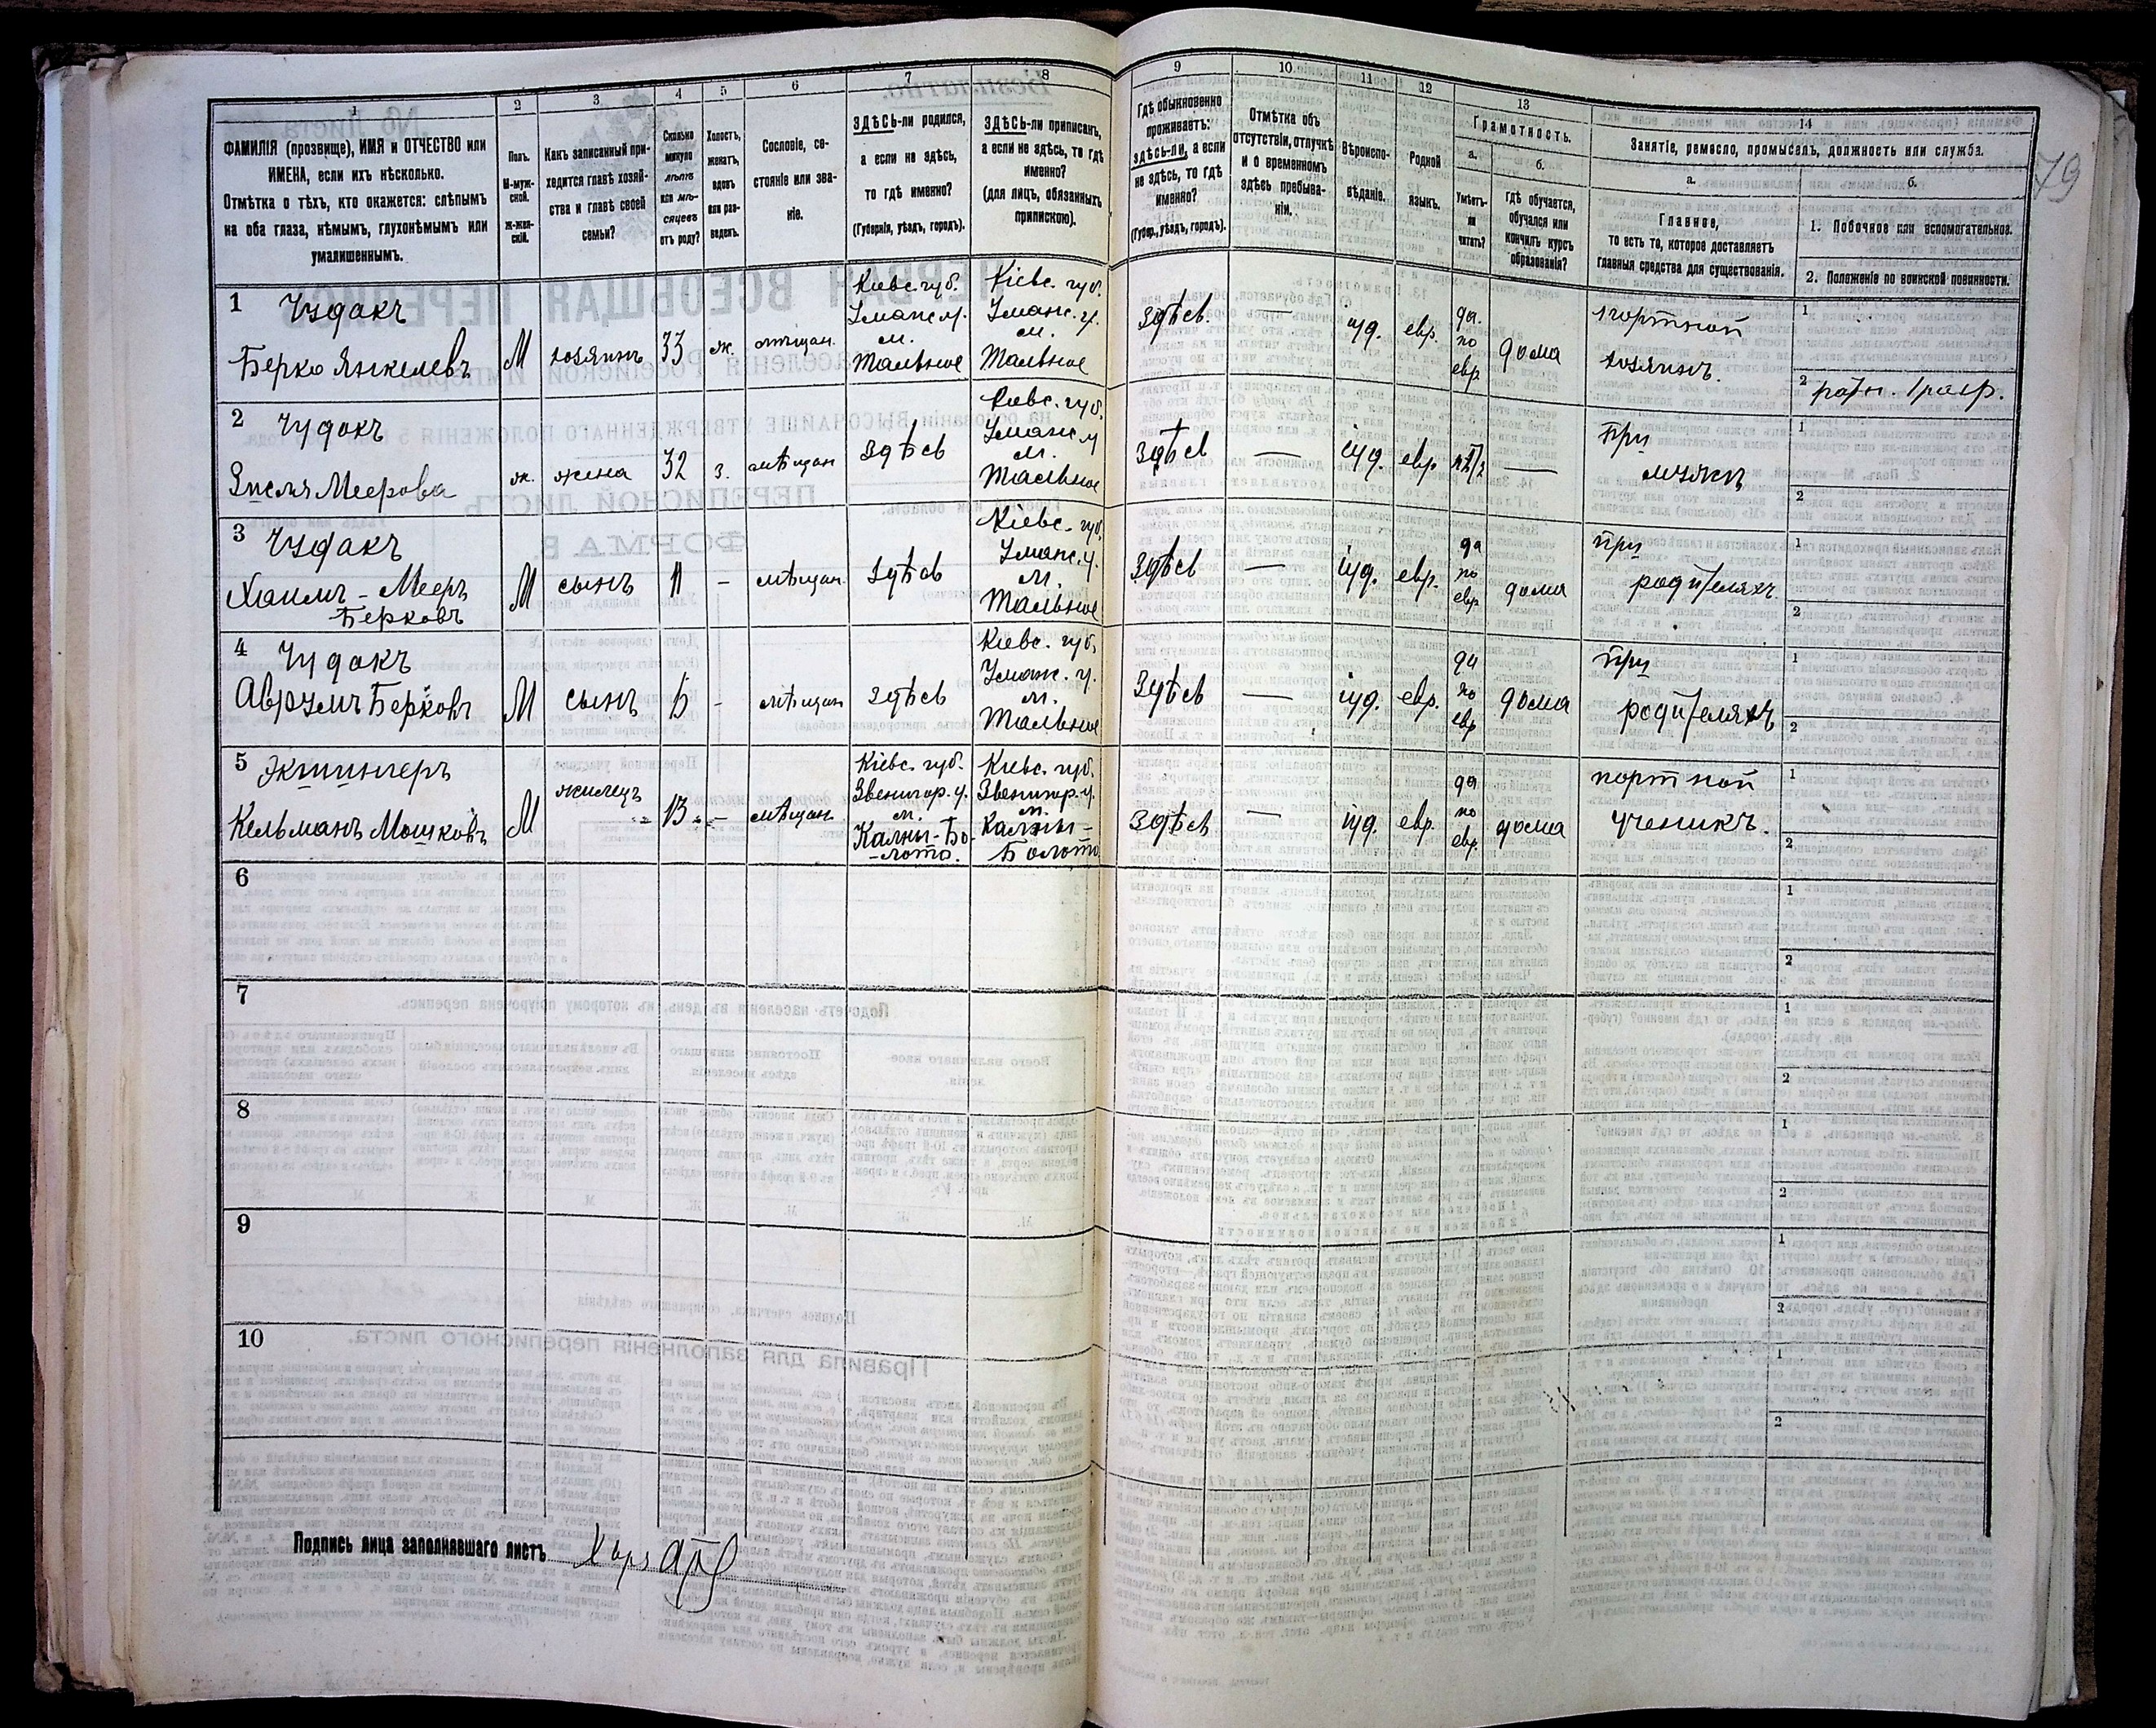 1
2
3
4
5
6
7
8
9
10
11
12
13
14
79
ФАМИЛІЯ (прозвище), ИМЯ и ОТЧЕСТВО или
ИМЕНА, если ихъ нѣсколько.
Отмѣтка о тѣхъ, кто окажется: слѣпымъ
на оба глаза, нѣмымъ, глухонѣмымъ или
умалишеннымъ.
Полъ.
М-муж-
ской.
Ж-жен-
скій.
Какъ записанный при-
ходится главѣ хозяй-
ства и главѣ своей
семьи?
Сколько
минуло
лѣтъ
или мѣ-
сяцевъ
отъ роду?
Холостъ,
женатъ,
вдовъ
или раз-
веденъ.
Сословіе, со-
стояніе или зва-
ніе.
ЗДѢСЬ-ли родился,
а если не здѣсь,
то гдѣ именно?
(Губернія, уѣздъ, городъ).
ЗДѢСЬ-ли приписанъ,
а если не здѣсь, то гдѣ
именно?
(для лицъ, обязанныхъ
припискою).
Гдѣ обыкновенно
проживаетъ:
здѣсь-ли, а если
не здѣсь, то гдѣ
именно?
(Губерн., уѣздъ, городъ).
Отмѣтка объ
отсутствіи, отлучкѣ
и о временномъ
здѣсь пребыва-
ніи.
Вѣроиспо-
вѣданіе.
Родной
языкъ.
Грамотность.
а.
Умѣетъ-
ли
читать?
б.
Гдѣ обучается,
обучался или
кончилъ курсъ
образованія?
Занятіе, ремесло, промыселъ, должность или служба.
а.
Главное,
то есть то, которое доставляетъ
главныя средства для существованія.
б.
1. Побочное или вспомогательное.
2. Положеніе по воинской повинности.
1 Чудакъ
Берко Янкелевъ
М
хозяинъ
33
ж.
мѣщан.
Кіевс. губ.
Уманс. у.
м.
Тальное
Кіевс. губ.
Уманс. у.
м.
Тальное
здѣсь
—
іуд.
евр.
да
по
евр.
дома
портной
хозяинъ.
1
2
2 Чудакъ
Меерова
ж.
жена
32
з.
мѣщан
здѣсь
Кіевс. губ.
Уманс. у
м.
Тальное
здѣсь
—
іуд.
евр.
—
при
мужѣ
1
2
3 Чудакъ
Хаимъ - Мееръ
Берковъ
М
сынъ
11
-
мѣщан.
здѣсь
Кіевс. губ.
Уманс. у.
м.
Тальное
здѣсь
—
іуд.
евр.
да
по
евр.
дома
при
родителяхъ
1
2
4 Чудакъ
Аврумъ Берковъ
М
сынъ
-
мѣщан
здѣсь
Кіевс. губ.
Уманс. у.
м.
Тальное
здѣсь
—
іуд.
евр.
да
по
евр.
дома
при
родителяхъ
1
2
5
Кельманъ Мошковъ
М
жилецъ
13
-
мѣщан.
Кіевс. губ.
Звенигор. у.
м.
Калны-Бо-
-лото.
Кіевс. губ.
Звенигор. у.
м.
Калны-
Болото
здѣсь
—
іуд.
евр.
да
по
евр.
дома
портной
ученикъ.
1
2
6
1
2
7
1
2
8
1
2
9
1
2
10
1
2
Подпись лица заполнявшаго листъ